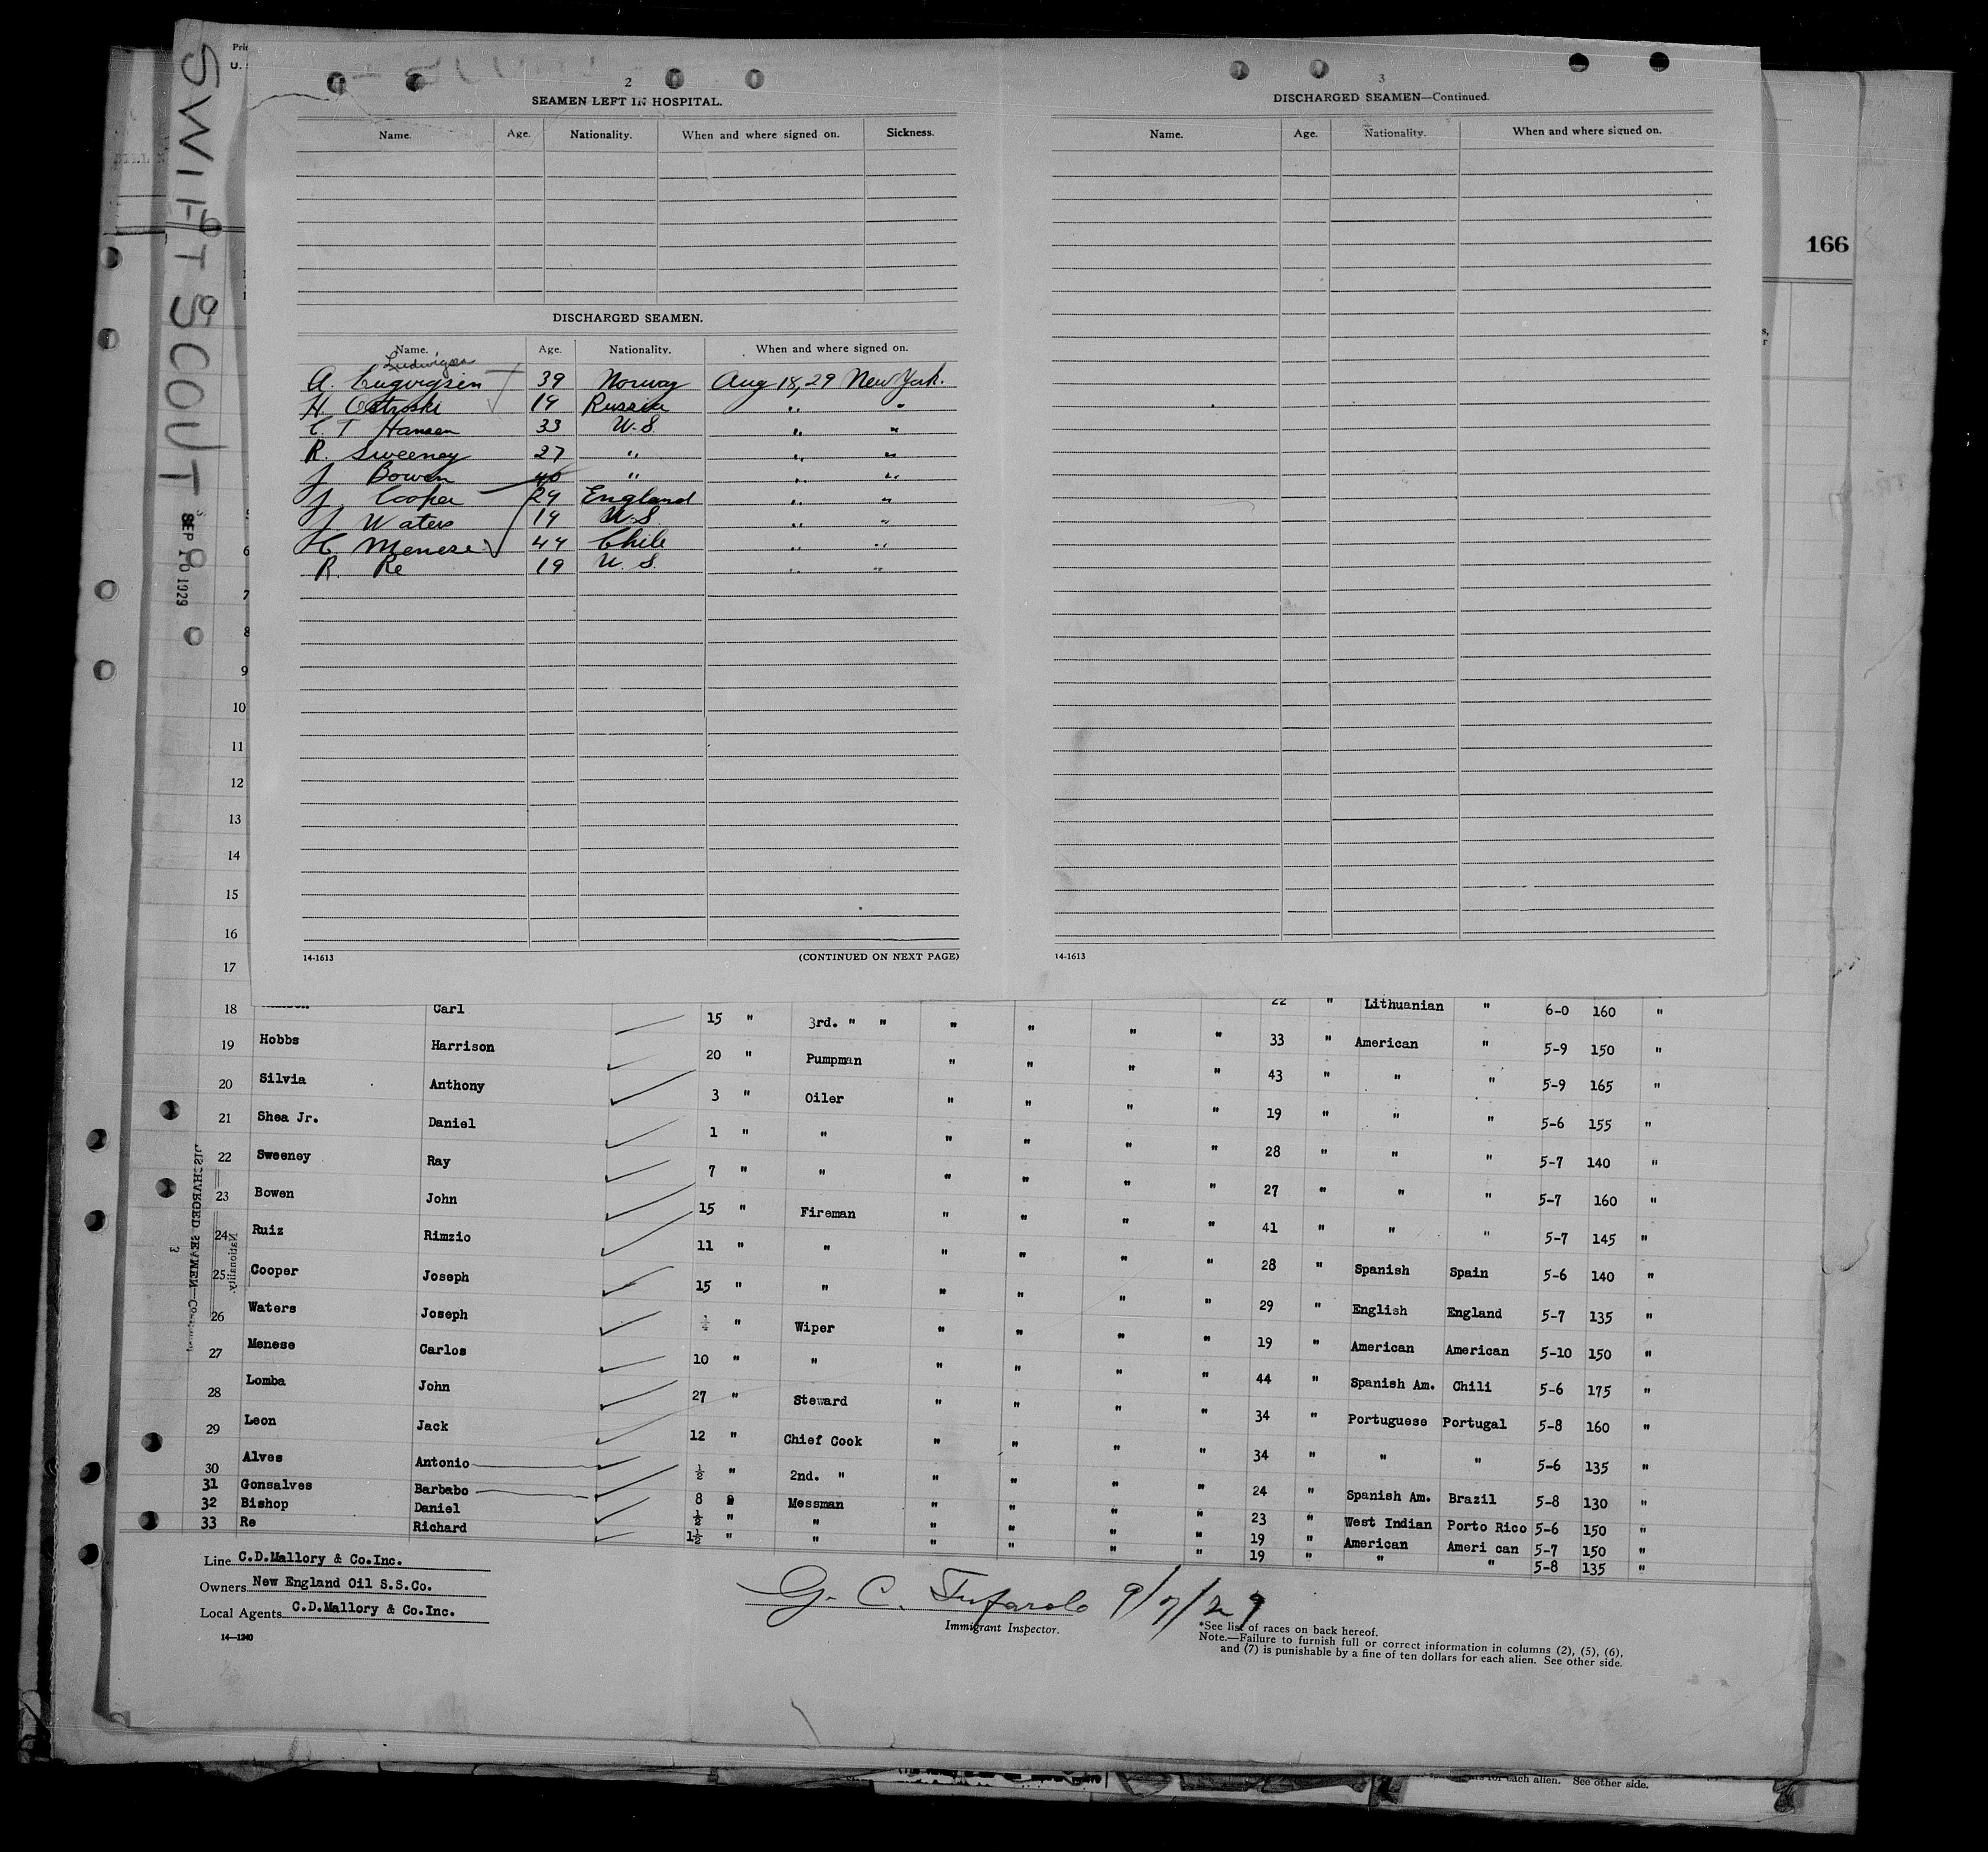 SWIFTSCOUT
SEP 10 1929
166
2
SEAMEN LEFT IN HOSPITAL.
Name. Age. Nationality. When and where signed on. Sickness.
DISCHARGED SEAMEN.
Name. Age. Nationality. When and where signed on.
Ludwigsen
A. 39 Norway Aug 18, 29 New York.
H. Ostroski 19 Russia " "
C. T Hansen 33 U.S. " "
R. Sweeney 27 " " "
J Bowen 40 " " "
J Cooper 29 England " "
J Waters 19 U.S. " "
C. Menese 44 Chile " "
R. Re 19 U.S. " "
14-1613 (CONTINUED ON NEXT PAGE)
3
DISCHARGED SEAMEN—Continued.
Name. Age. Nationality. When and where signed on.
14-1613
6
7
8
9
10
11
12
13
14
15
16
17
18 Carl 15 " 3rd. " " " " " " 22 " Lithuanian " 6-0 160 "
19 Hobbs Harrison 20 " Pumpman " " " " 33 " American " 5-9 150 "
20 Silvia Anthony 3 " Oiler " " " " 43 " " " 5-9 165 "
21 Shea Jr. Daniel 1 " " " " " " 19 " " " 5-6 155 "
22 Sweeney Ray 7 " " " " " " 28 " " " 5-7 140 "
23 Bowen John 15 " Fireman " " " " 27 " " " 5-7 160 "
24 Ruiz Rimzio 11 " " " " " " 41 " " " 5-7 145 "
25 Cooper Joseph 15 " " " " " " 28 " Spanish Spain 5-6 140 "
26 Waters Joseph " Wiper " " " " 29 " English England 5-7 135 "
27 Menese Carlos 10 " " " " " " 19 " American American 5-10 150 "
28 Lomba John 27 " Steward " " " " 44 " Spanish Am. Chili 5-6 175 "
29 Leon Jack 12 " Chief Cook " " " " 34 " Portuguese Portugal 5-8 160 "
30 Alves Antonio ½ " 2nd. " " " " " 34 " " " 5-6 135 "
31 Gonsalves Barbabo 8 " Messman " " " " 24 " Spanish Am. Brazil 5-8 130 "
32 Bishop Daniel ½ " " " " " " 23 " West Indian Porto Rico 5-6 150 "
33 Re Richard 1½ " " " " " " 19 " American Ameri can 5-7 150 "
19 " " " 5-8 135 "
Line C.D.Mallory & Co.Inc.
Owners New England Oil S.S.Co.
Local Agents C.D.Mallory & Co.Inc.
14—1240
G. C. Tufarolo 9/7/29
Immigrant Inspector.
*See list of races on back hereof.
Note.—Failure to furnish full or correct information in columns (2), (5), (6),
and (7) is punishable by a fine of ten dollars for each alien. See other side.
for each alien. See other side.
DISCHARGED SEAMEN—Co
Nationality.
3